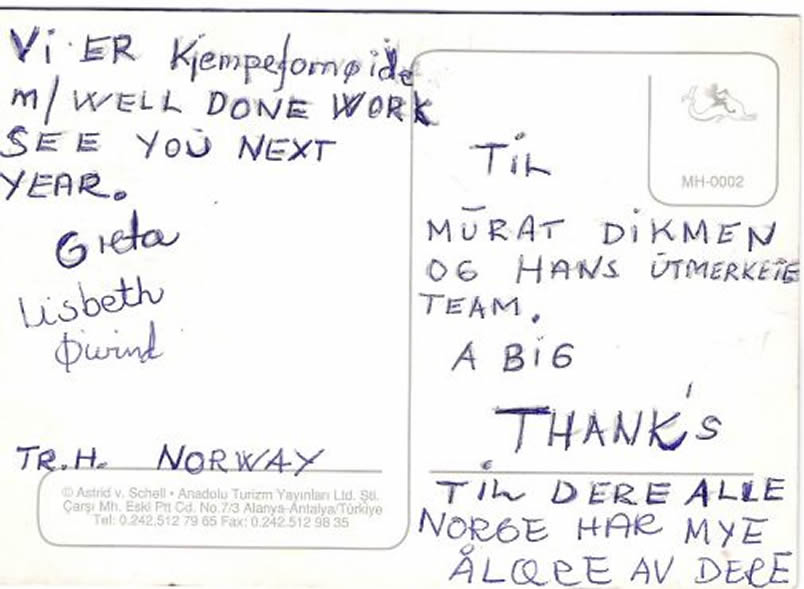 Vi ER Kjempefornøide
m/ WELL DONE WORK
SEE YOU NEXT
YEAR.
Greta
Lisbeth
Øivind
TR.H. NORWAY
© Astrid v. Schell • Anadolu Turizm Yayınları Ltd. Şti.
Çarşı Mh. Eski Ptt Cd. No.7/3 Alanya-Antalya/Türkiye
Tel: 0.242.512 79 65 Fax: 0.242.512 98 35
MH-0002
TiL
MURAT DiKMEN
OG HANS UTMERKETE
TEAM.
A BiG
THANK'S
TiL DERE ALLE
NORGE HAR MYE
Å LÆRE AV DERE